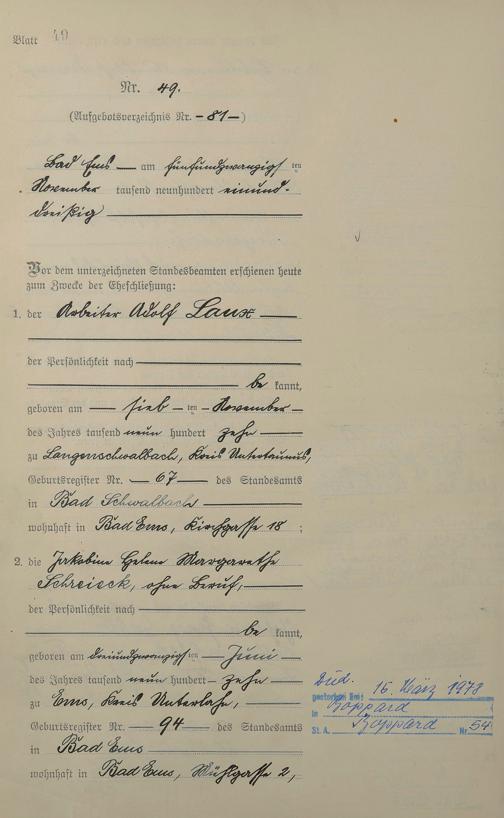 Blatt 49
Nr. 49.
(Aufgebotsverzeichnis Nr. – 81 – )
Bad Ems — am fünfundzwanzigsten
November tausend neunhundert einund-
dreißig
Vor dem unterzeichneten Standesbeamten erschienen heute
zum Zwecke der Eheschließung:
1. der Arbeiter Adolf Laux
der Persönlichkeit nach
be kannt,
geboren am — sieb – ten – November –
des Jahres tausend neun hundert zehn
zu Langenschwalbach, Kreis Untertaunus,
Geburtsregister Nr. — 67 — des Standesamts
in Bad Schwalbach
wohnhaft in Bad Ems, Kirchgasse 18 ;
2. die Jakobine Helene Margarethe
Schreieck, ohne Beruf,
der Persönlichkeit nach
be kannt,
geboren am dreiundzwanzigsten — Juni —
des Jahres tausend neun hundert – zehn
zu Ems, Kreis Unterlahn,
Geburtsregister Nr. — 94 — des Standesamts
in Bad Ems
wohnhaft in Bad Ems, Mühlgasse 2,
gestorben am: 16. März 1978
in Boppard
St. A. Boppard Nr 54